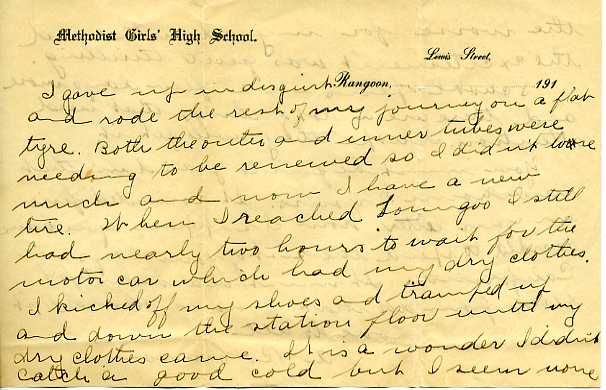 Methodist Girls' High School.
Lewis Street,
Rangoon, 191
I gave up in disgust
and rode the rest of my journey on a flat
tyre. Both the outer and inner tubes were
needing to be renewed so I didn't lose
much and now I have a new
tire. When I reached I still
had nearly two hours to wait for the
motor car which had my dry clothes.
I kicked off my shoes and tramped up
and down the station floor until my
dry clothes came. It is a wonder I didn't
catch a good cold but I seem none